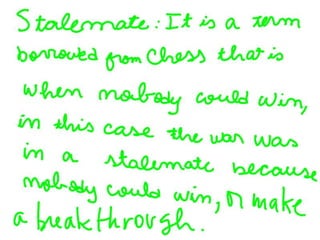 Stalemate: It is a term
borrowed from Chess that is
when nobody could win,
in this case the war was
in a stalemate because
nobody could win, or make
a breakthrough.